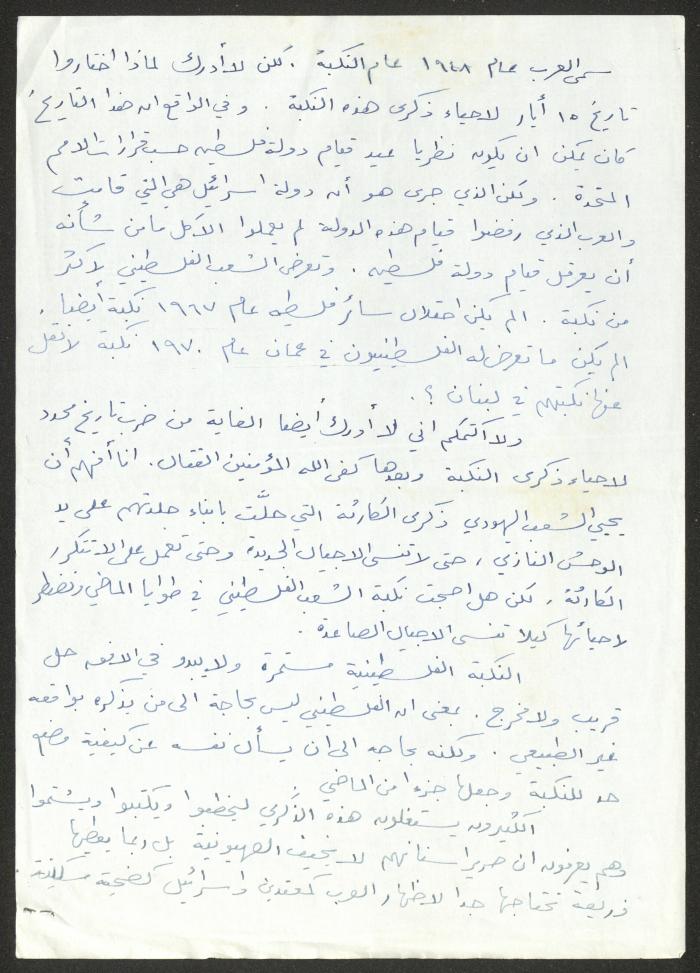 سمى العرب عام ١٩٤٨ عام النكبة . لكن لا أدرك لماذا اختاروا
تاريخ ١٥ أيار لاحياء ذكرى هذه النكبة . وفي الواقع ان هذا التاريخ
كان يمكن ان يكون نظريا عيد قيام دولة فلسطين حسب قرارات الامم
المتحدة . ولكن الذي جرى هو أن دولة اسرائيل هي التي قامت
والعرب الذي رفضوا قيام هذه الدولة لم يعملوا الا كل ما من شأنه
أن يعرقل قيام دولة فلسطين . وتعرض الشعب الفلسطيني لاكثر
من نكبة . الم يكن احتلال سائر فلسطين عام ١٩٦٧ نكبة أيضا .
الم يكن ما تعرض له الفلسطينيون في عمان عام ١٩٧٠ نكبة لا تقل
عنها نكبتهم في لبنان ؟ .
ولا اكتمكم اني لا أدرك أيضا الغاية من ضرب تاريخ محدد
لاحياء ذكرى النكبة وبعدها كفى الله المؤمنين القتال . انا أفهم أن
يحيي الشعب اليهودي ذكرى الكارثة التي حلَّت بابناء جلدتهم على يد
الوحش النازي ، حتى لا تنسى الاجيال الجديدة وحتى تعمل على الا تتكرر
الكارثة ، لكن هل اصبحت نكبة الشعب الفلسطيني في طوايا الماضي ونضطر
لاحيائها كيلا تنسى الاجيال الصاعدة .
النكبة الفلسطينية مستمرة ولا يبدو في الافق حل
قريب ولا مخرج . بمعنى ان الفلسطيني ليس بحاجة الى من يذكره بواقعه
غير الطبيعي . ولكنه بحاجه الى ان يسأل نفسه عن كيفية وضع
حد للنكبة وجعلها جزءا من الماضي
الكثيرون يستغلون هذه الذكرى ليخطبوا ويكتبوا ويشتموا
وهم يعرفون ان صرير اسنانهم لا يخيف الصهيونية بل ربما يعطيها
ذريعة تحتاجها جدا لاظهار العرب كمعتدين واسرائيل كضحية مسكينة .